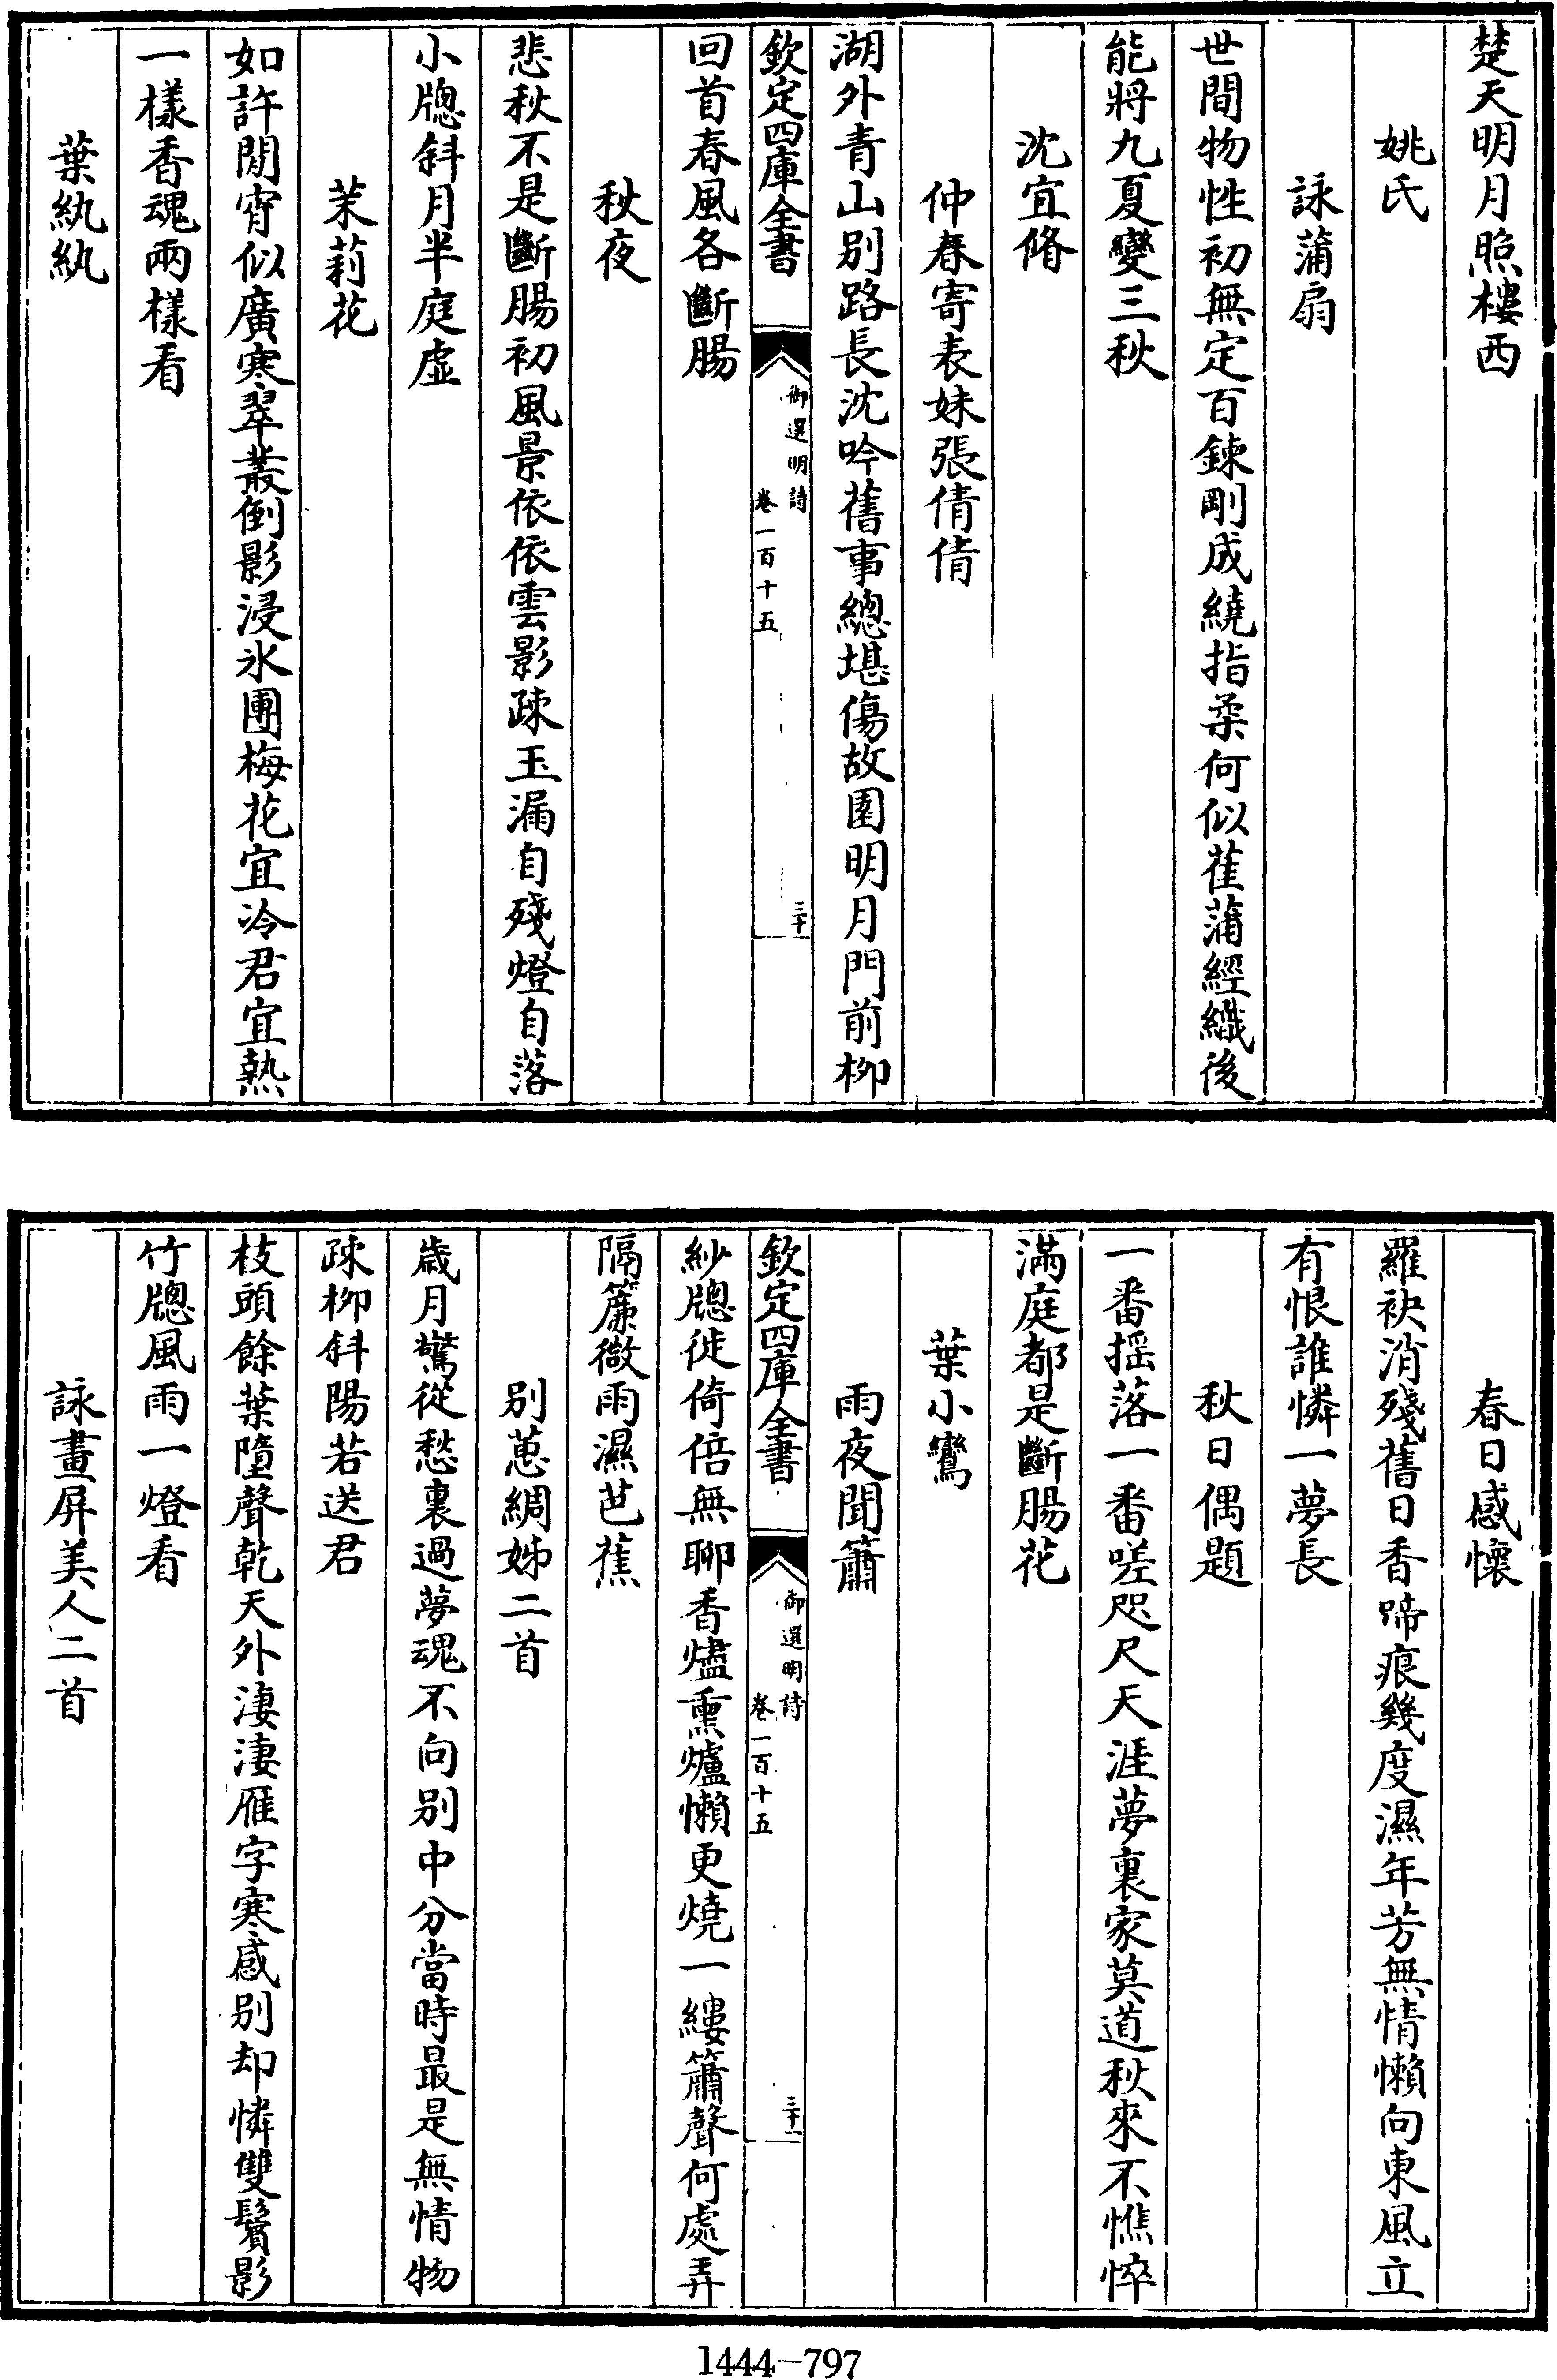 楚天明月照樓西
姚氏
詠蒲扇
世間物性初無定百鍊剛成繞指柔何似萑蒲經織後
能將九夏變三秋
沈宜脩
仲春寄表妹張倩倩
湖外青山别路長沈吟舊事總堪傷故園明月門前柳
欽定四庫全書
御選明詩
卷一百十五
三十
回首春風各斷腸
秋夜
悲秋不是斷腸初風景依依雲影疎玉漏自殘燈自落
小牕斜月半庭虛
茉莉花
如許閒宵似廣寒翠叢倒影浸氷團梅花宜冷君宜熱
一樣香魂兩樣看
葉紈紈
春日感懷
羅袂消殘舊日香啼痕幾度濕年芳無情懶向東風立
有恨誰憐一夢長
秋日偶題
一番摇落一番嗟咫尺天涯夢裏家莫道秋來不憔悴
滿庭都是斷腸花
葉小鸞
雨夜聞簫
欽定四庫全書
御選明詩
卷一百十五
三十一
紗牕徙倚倍無聊香燼熏爐懶更燒一縷簫聲何處弄
隔簾微雨濕芭蕉
别蕙綢姊二首
歲月驚從愁裏過夢魂不向别中分當時最是無情物
疎柳斜陽若送君
枝頭餘葉墮聲乾天外淒淒雁字寒感别却憐雙鬢影
竹牕風雨一燈看
詠畫屏美人二首
1444-797